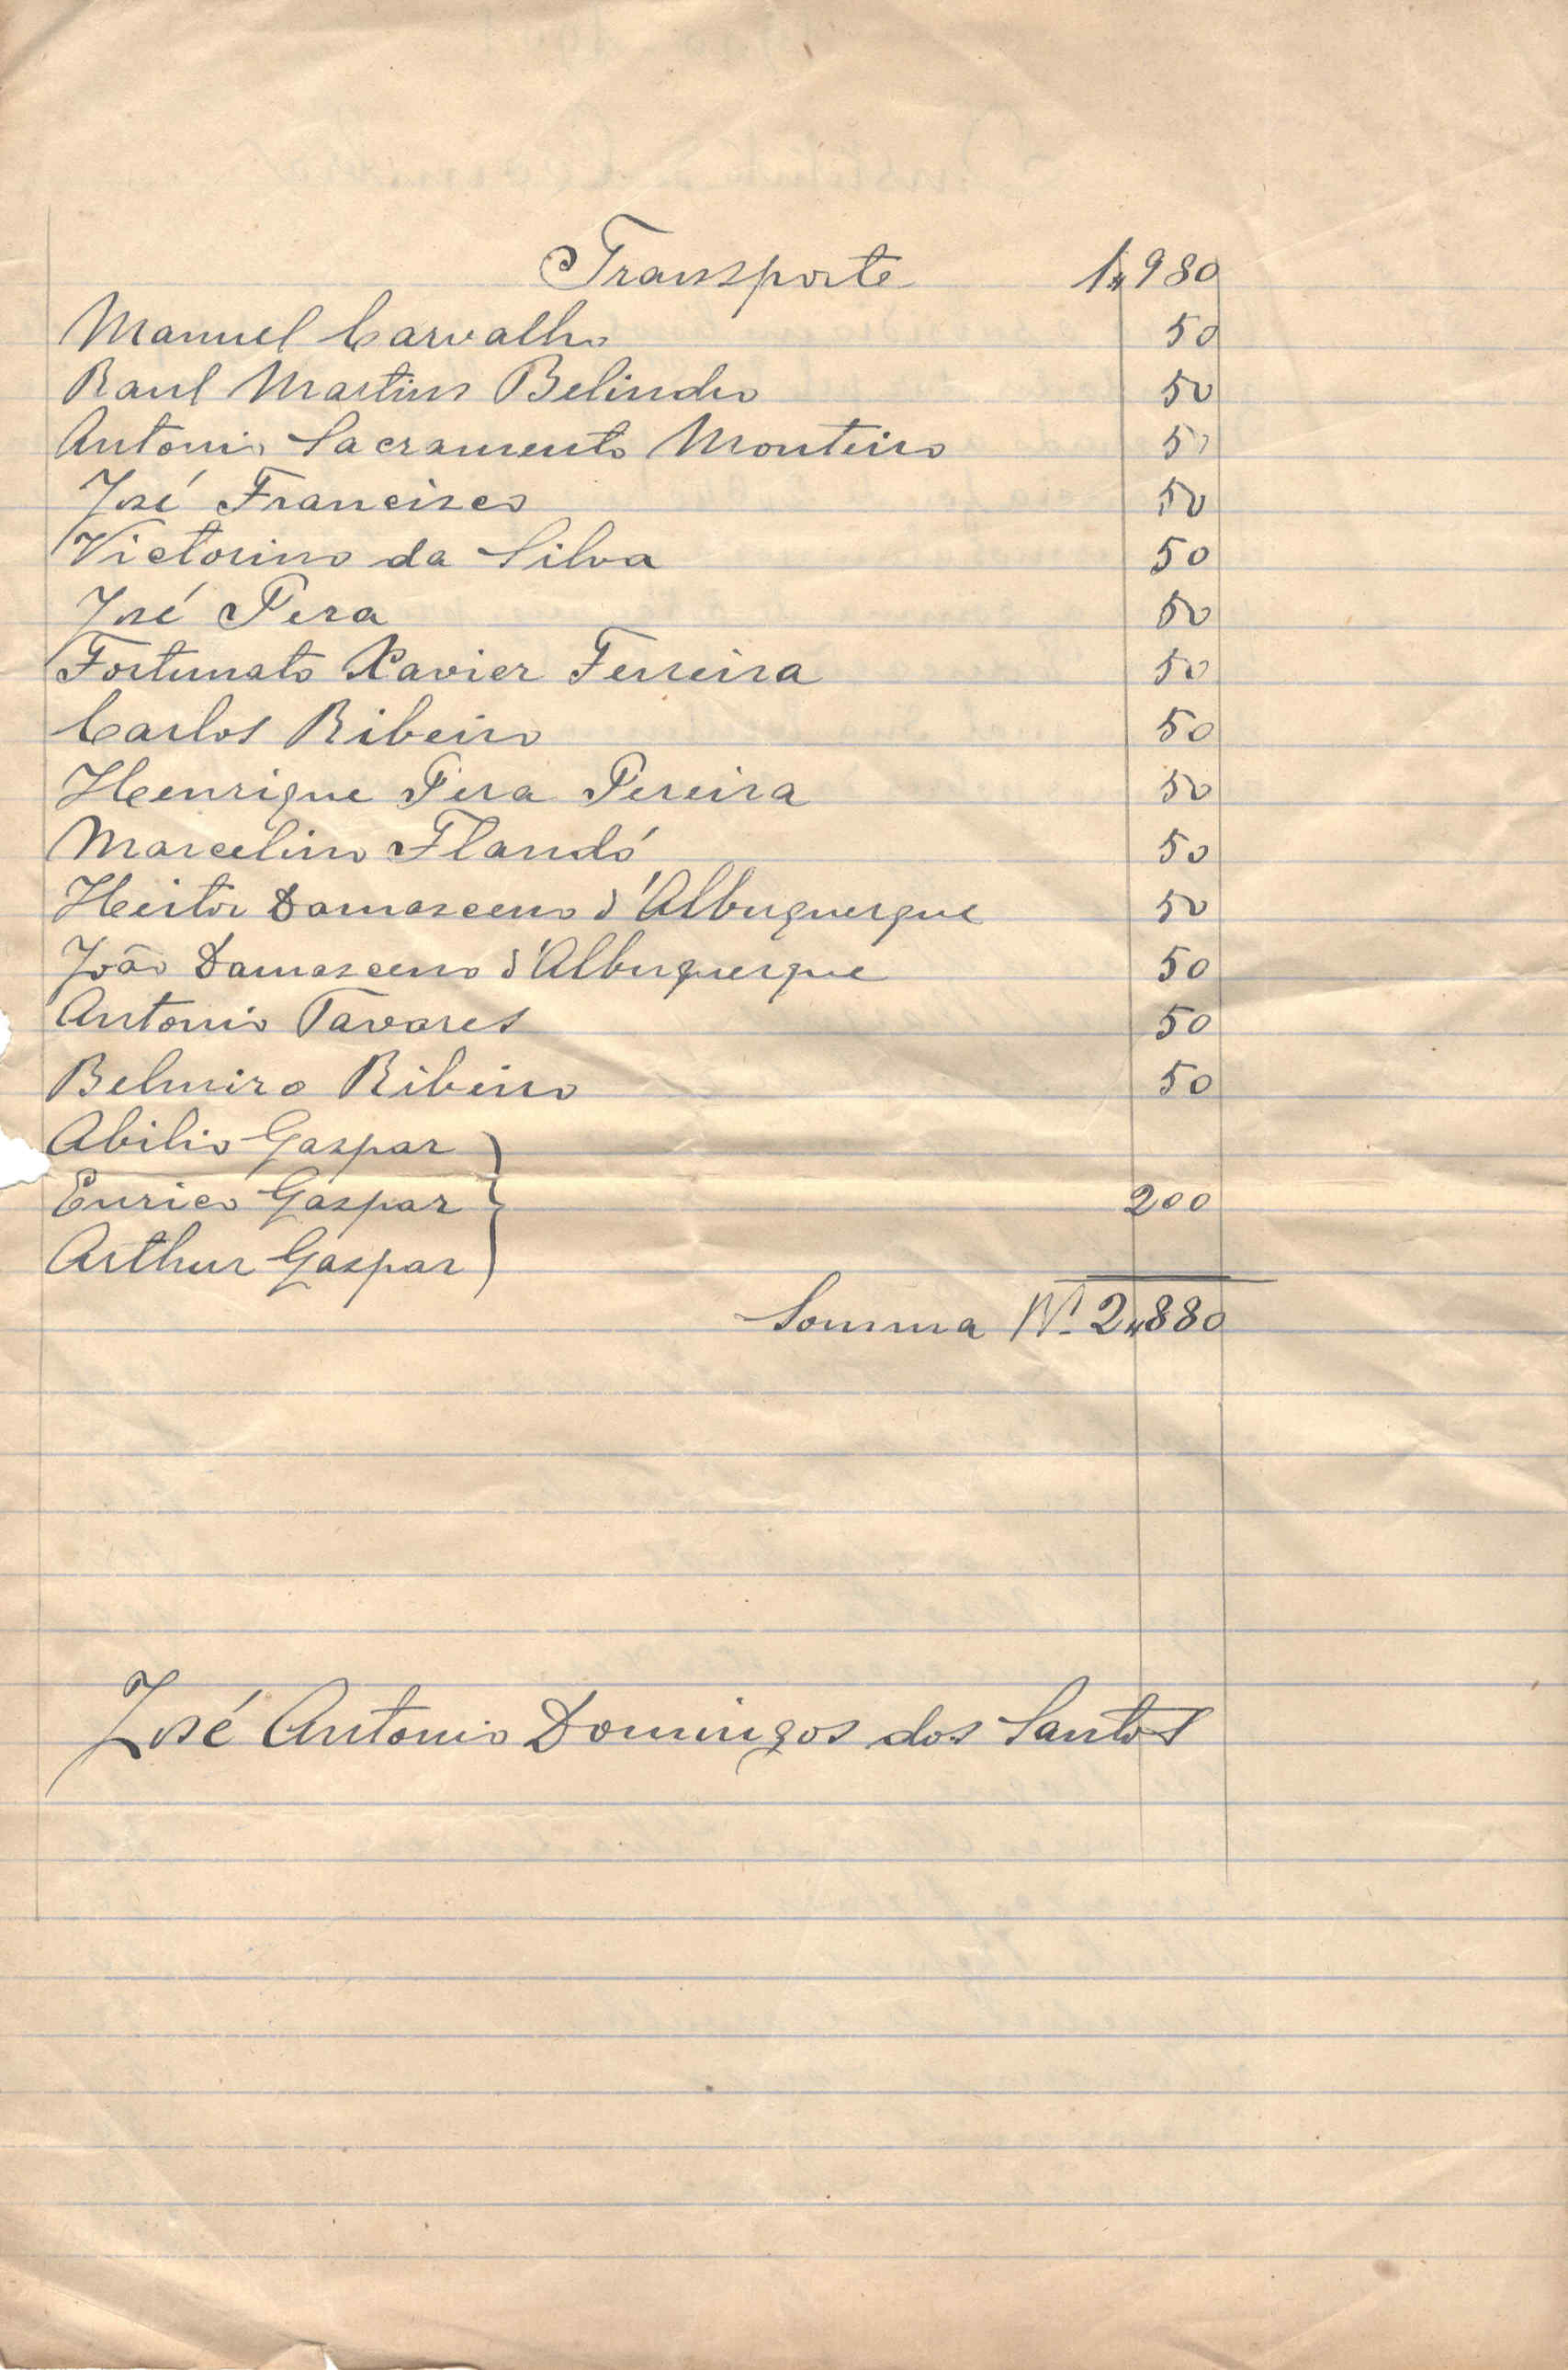 Transporte 1„980
Manuel Carvalho 50
Raul Martins Belindro 50
Antonio Sacramento Monteiro 50
José Francisco 50
Victorino da Silva 50
José Pera 50
Fortunato Xavier Ferreira 50
Carlos Ribeiro 50
Henrique Pera Pereira 50
Marcelino Flandó 50
Heitor Damasceno d'Albuquerque 50
João Damasceno d'Albuquerque 50
Antonio Tavares 50
Belmiro Ribeiro 50
Abilio Gaspar
Eurico Gaspar 200
Arthur Gaspar
Somma 2„880
José Antonio Domingos dos Santos